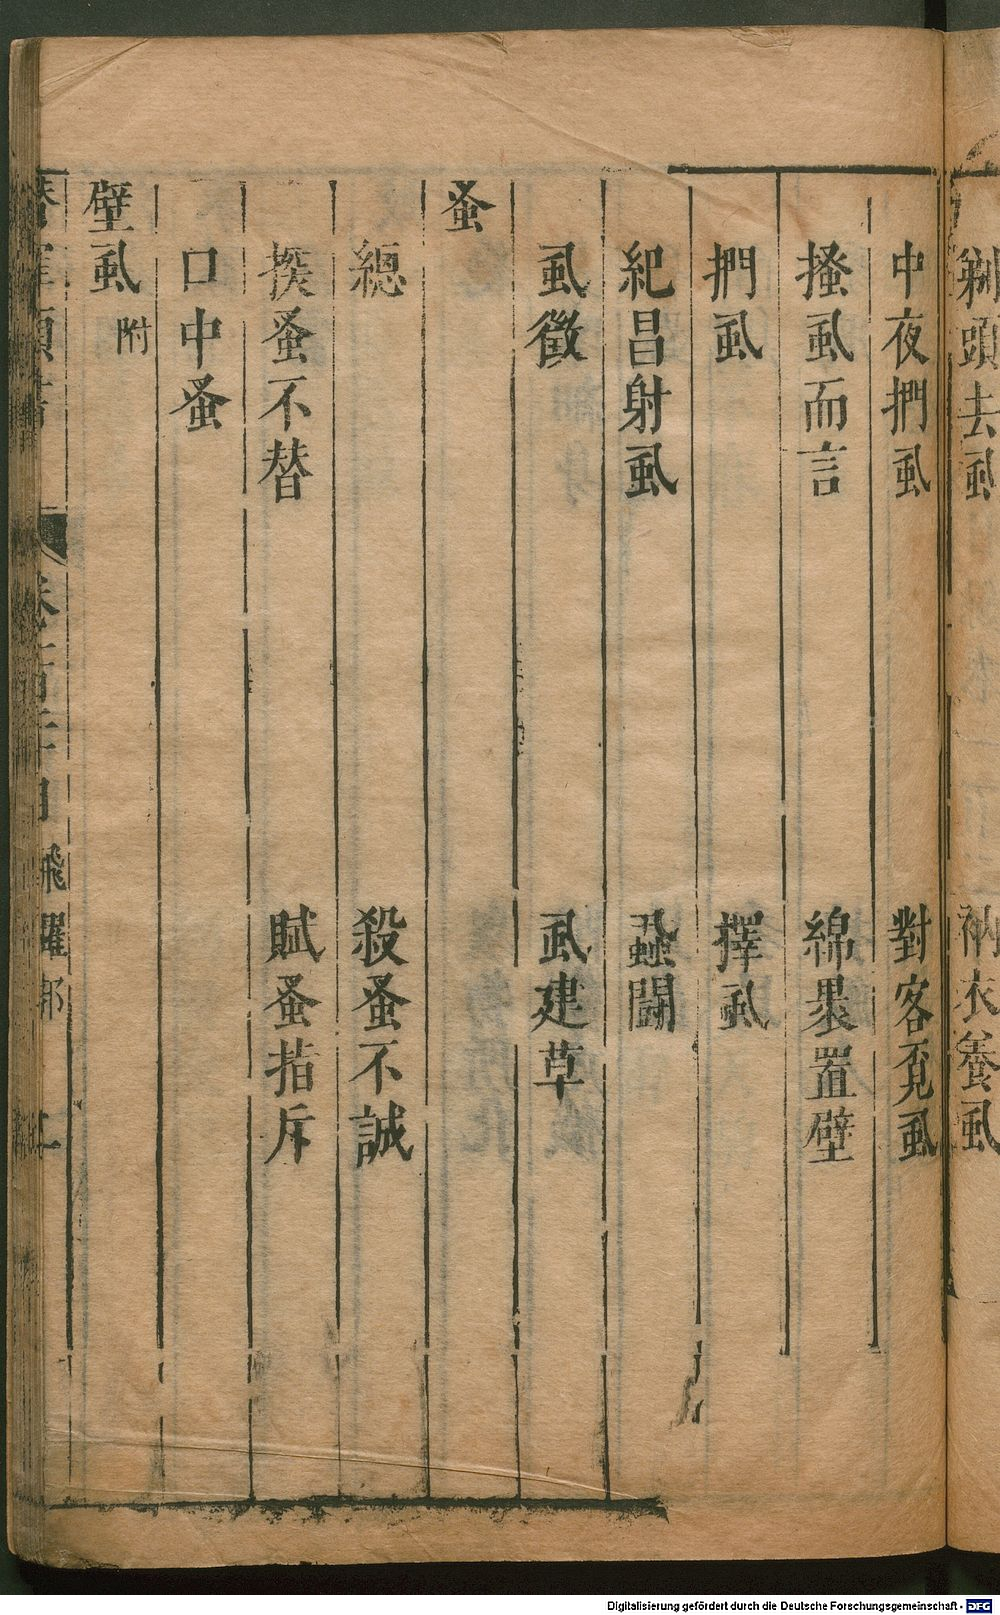 剃頭去虱 衲衣養虱
中夜捫虱 對客覓虱
搔虱而言 綿裹置壁
捫虱 擇虱
紀昌射虱 蝨鬬
虱徵 虱建草
蚤
總 殺蚤不誠
揆蚤不替 賦蚤指斥
口中蚤
壁虱附
飛躍部
Digitalisierung gefördert durch die Deutsche Forschungsgemeinschaft - DFG